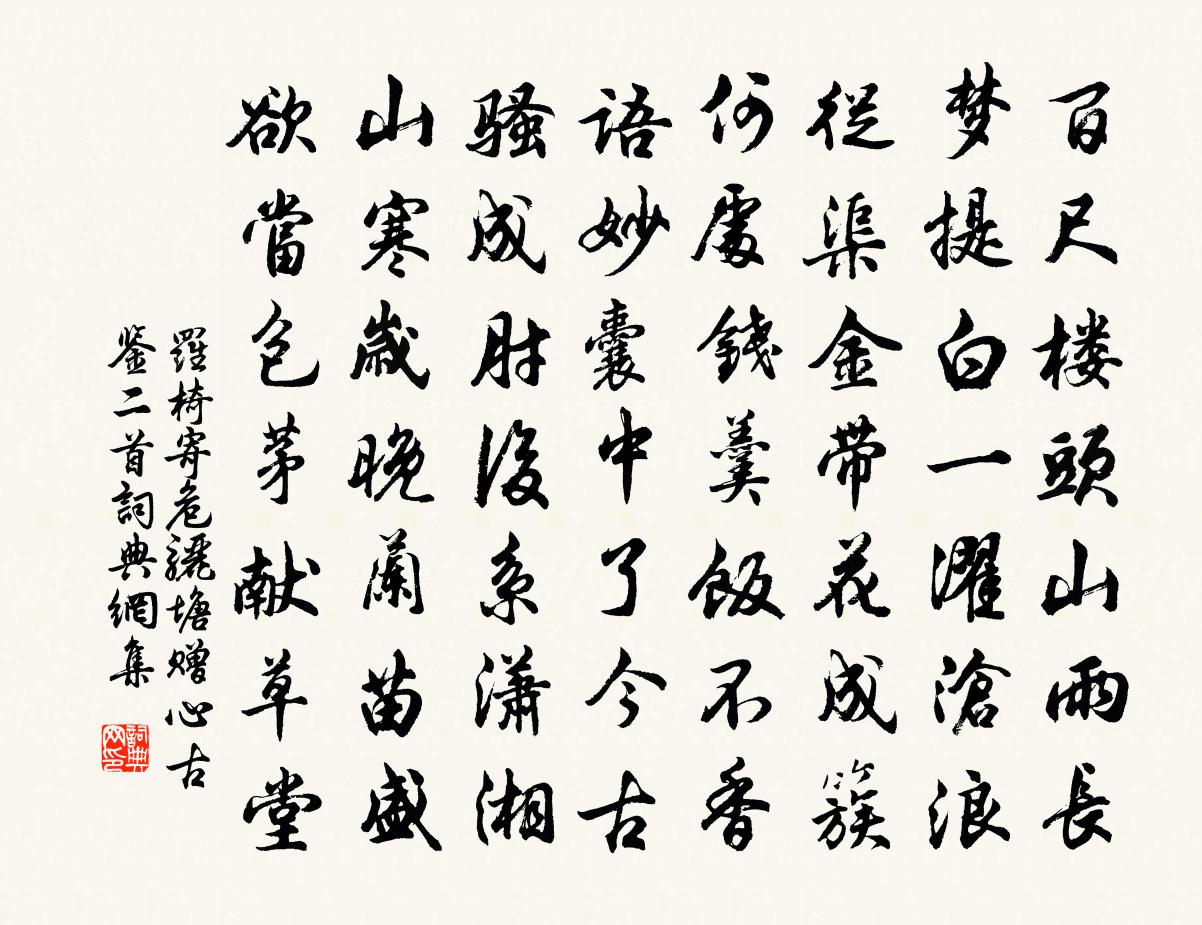 百尺楼頭山雨長
梦提白一濯滄浪
從渠金带花成簇
何處錢羹飯不香
语妙囊中了今古
骚成肘後系潇湘
山寒歲晚蘭苗盛
欲當包茅献草堂
羅椅寄危驪塘赠心古
鉴二首詞典網集
詞典网印